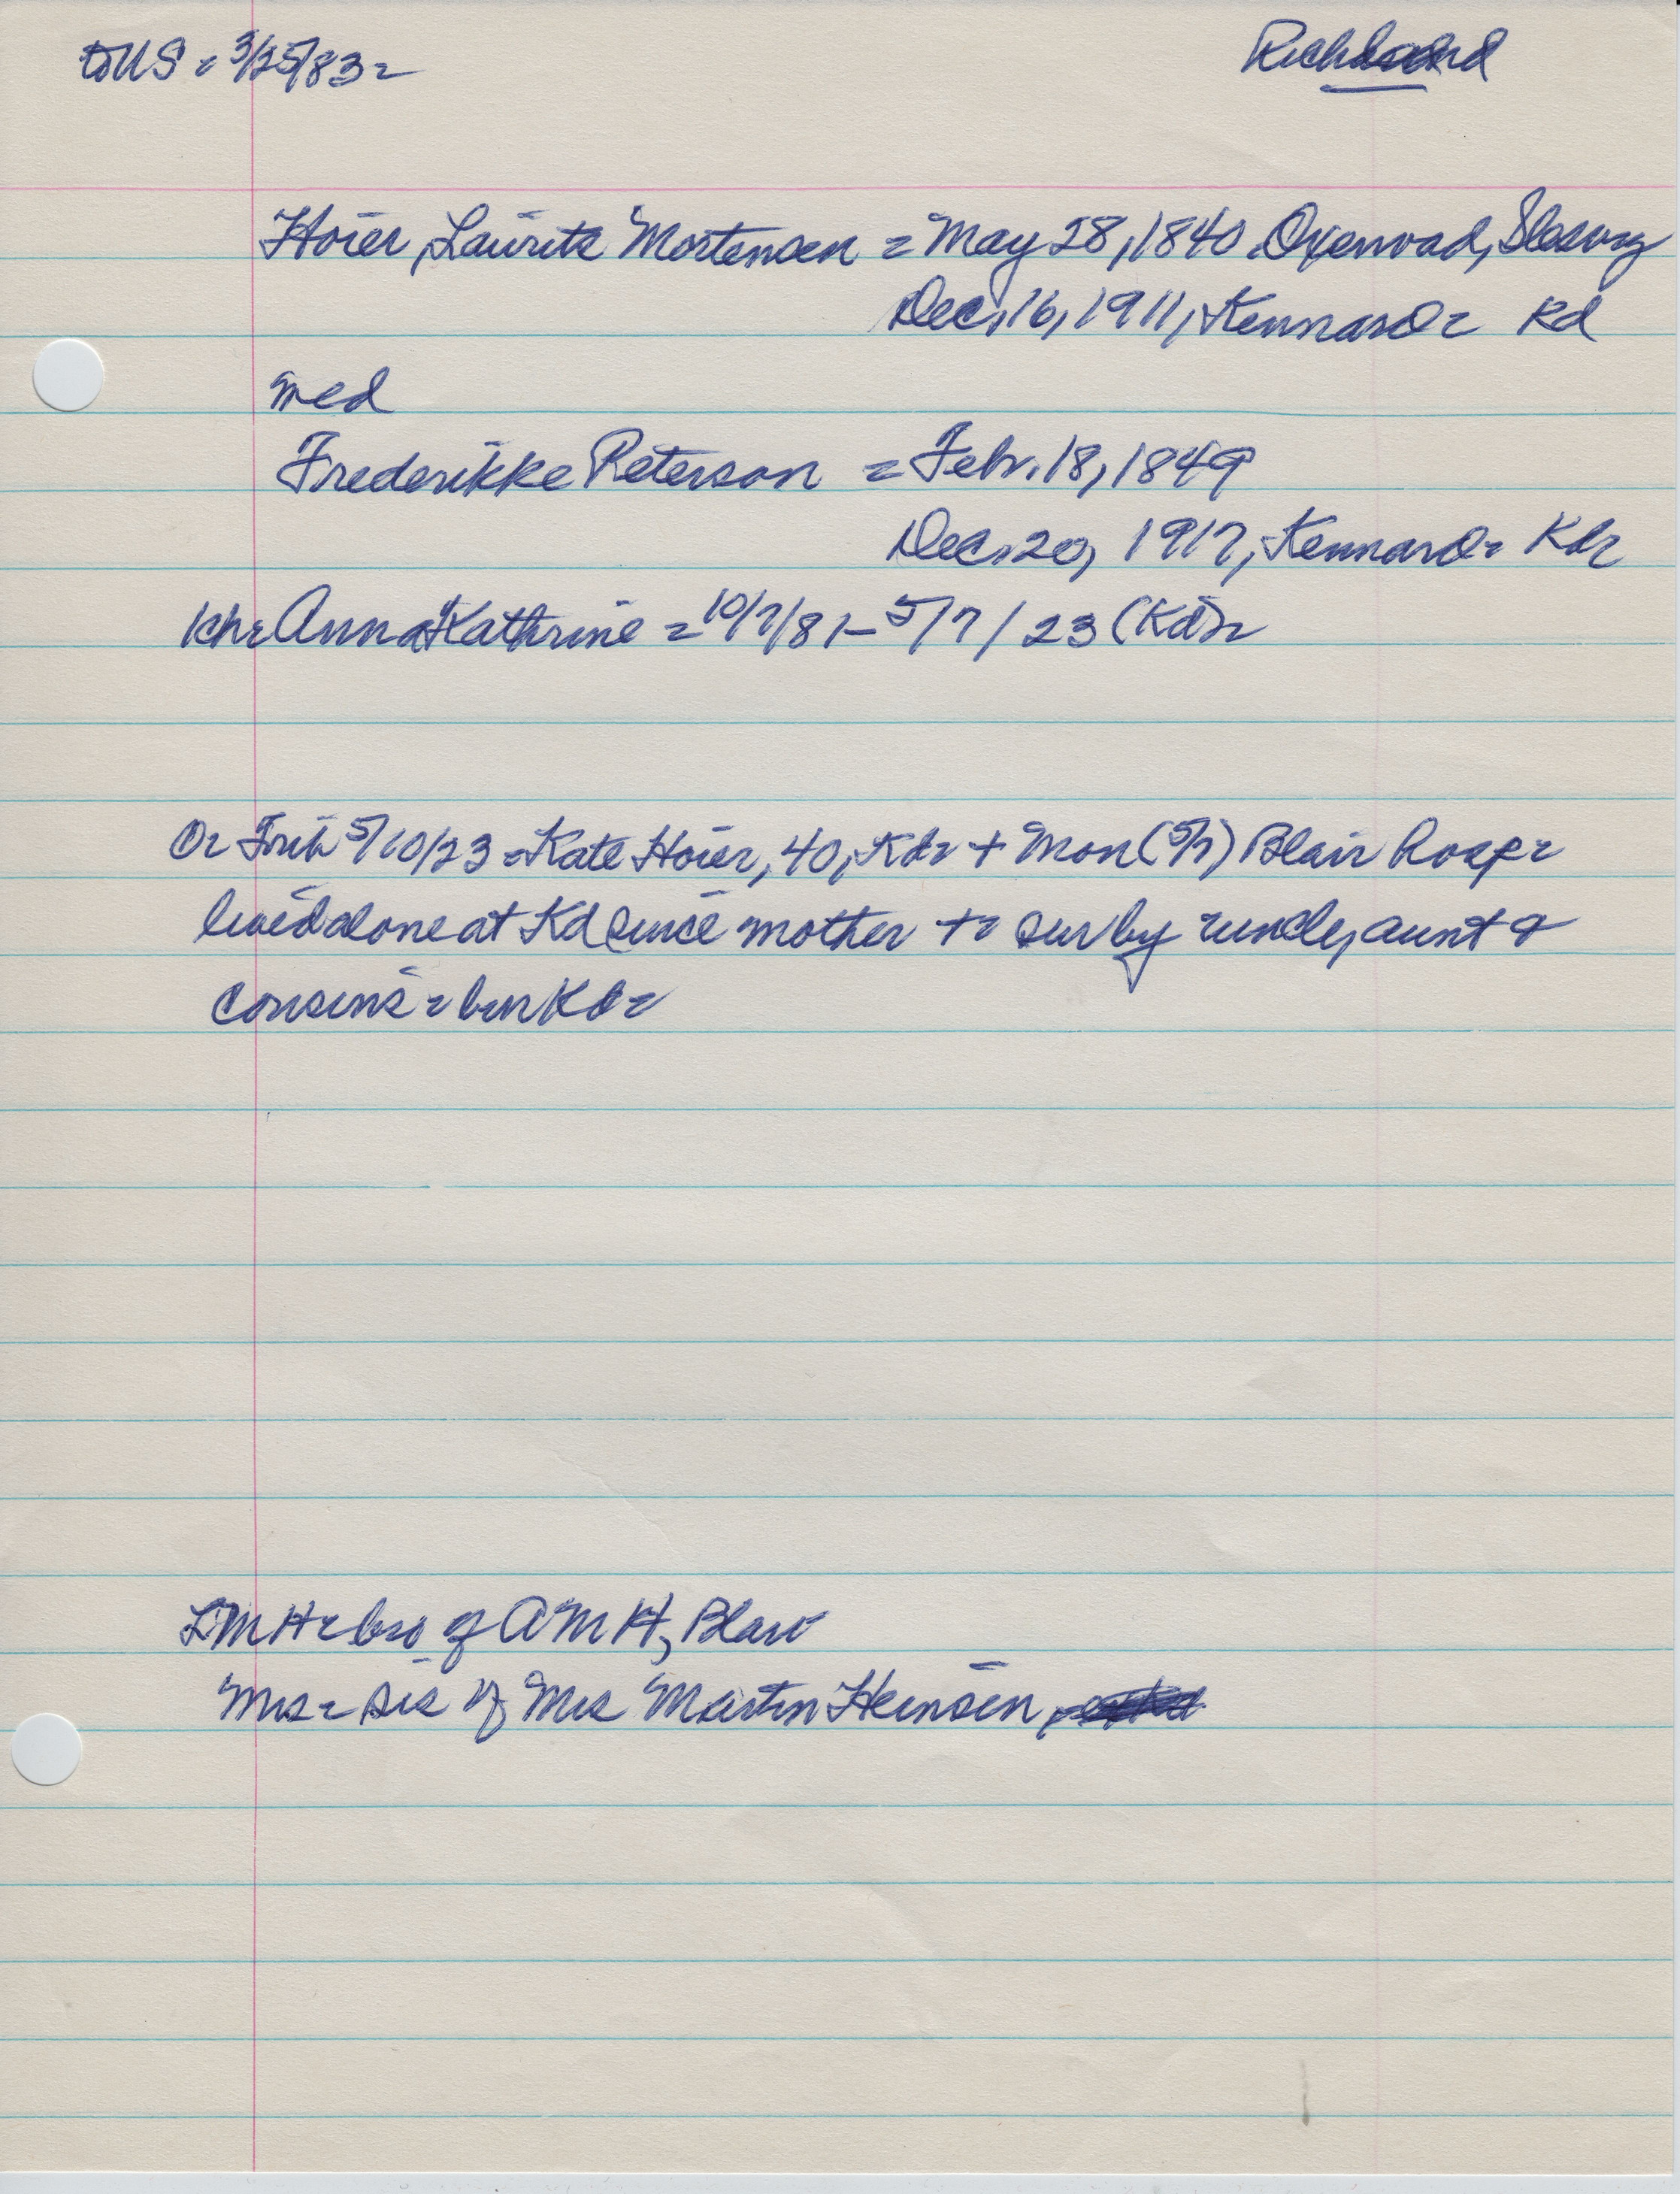 to US = 3/25/83 =
Richard
Hoier, Lauritz Mortensen = May 28, 1840, Oxenvad, Slesvig
Dec. 16, 1911, Kennard = Kd
med
Frederikke Peterson = Febr. 18, 1849
Dec. 20, 1917, Kennard = Kd =
1ch = Anna Kathrine = 10/7/81 - 5/7/23 (Kd) =
O = 5/10/23 = Kate Hoier, 40, Kd = + Mon (5/7) Blair Hosp =
lived alone at Kd since mother + = sur by uncle, aunt &
cousins = bur Kd =
LMH = bro of AMH, Blair
Mrs = sis of Mrs Martin Heinsen,